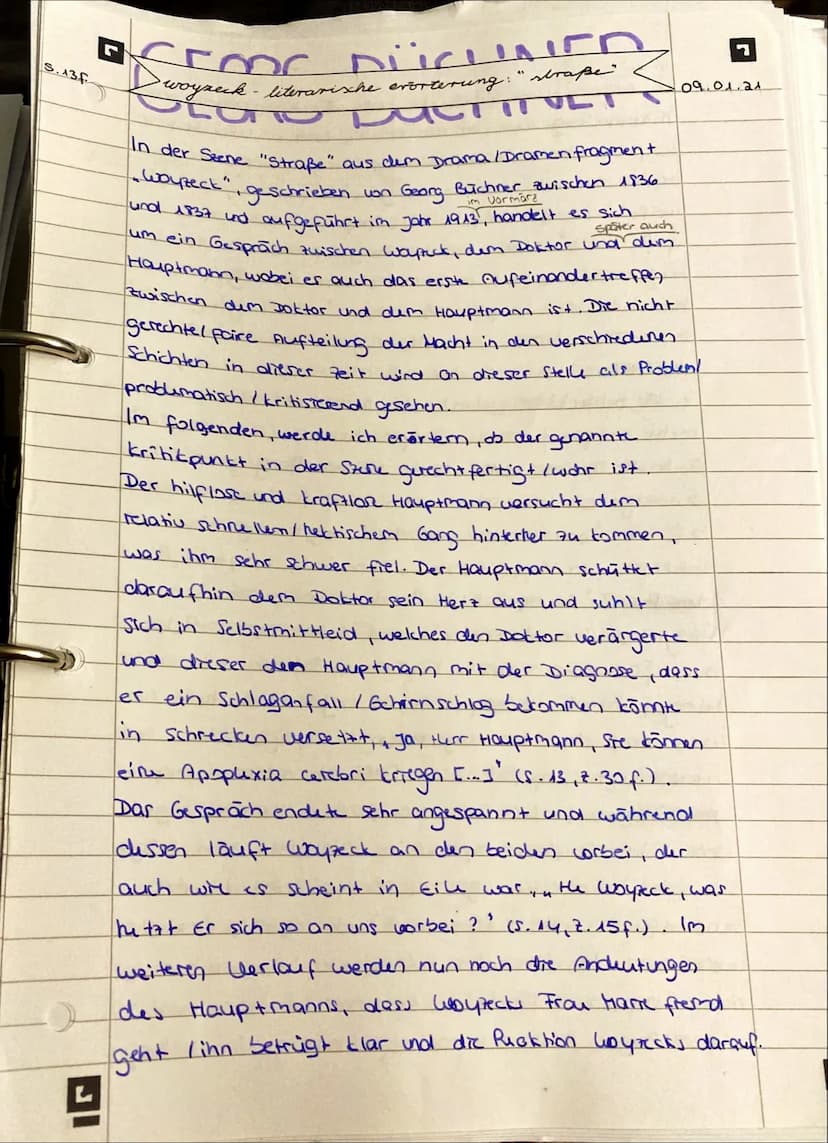 GEORG BÜCHNER
S. 13f.
woyzeck - literarische erörterung: "straße"
09.01.21
In der Szene "Straße" aus dem Drama/Dramenfragment
„Woyzeck", geschrieben von Georg Büchner zwischen 1836
im Vormärz
und 1837 und aufgeführt im Jahr 1913, handelt es sich
später auch
um ein Gespräch zwischen Woyzeck, dem Doktor und dem
Hauptmann, wobei es auch das erste Aufeinandertreffen
zwischen dem Doktor und dem Hauptmann ist. Die nicht
gerechte/faire Aufteilung der Macht in den verschiedenen
Schichten in dieser Zeit wird an dieser Stelle als Problem/
problematisch/kritisierend gesehen.
Im folgenden, werde ich erörtern, ob der genannte
Kritikpunkt in der Szene gerechtfertigt/wahr ist.
Der hilflose und kraftlose Hauptmann versucht dem
relativ schnellem/hektischem Gang hinterher zu kommen,
was ihm sehr schwer fiel. Der Hauptmann schüttet
daraufhin dem Doktor sein Herz aus und suhlt
sich in Selbstmitleid, welches den Doktor verärgerte
und dieser den Hauptmann mit der Diagnose, dass
er ein Schlaganfall/Gehirnschlag bekommen könnte
in Schrecken versetzt, „Ja, Herr Hauptmann, Sie können
eine Apoplexia cerebri kriegen [...]" (S. 13, Z. 30f.).
Das Gespräch endete sehr angespannt und während
dessen läuft Woyzeck an den beiden vorbei, der
auch wie es scheint in Eile war, „He Woyzeck, was
hetzt Er sich so an uns vorbei?" (S. 14, Z. 15f.). Im
weiteren Verlauf werden nun noch die Andeutungen
des Hauptmanns, dass Woyzecks Frau Marie fremd
geht/ihn betrügt klar und die Reaktion Woyzecks darauf.